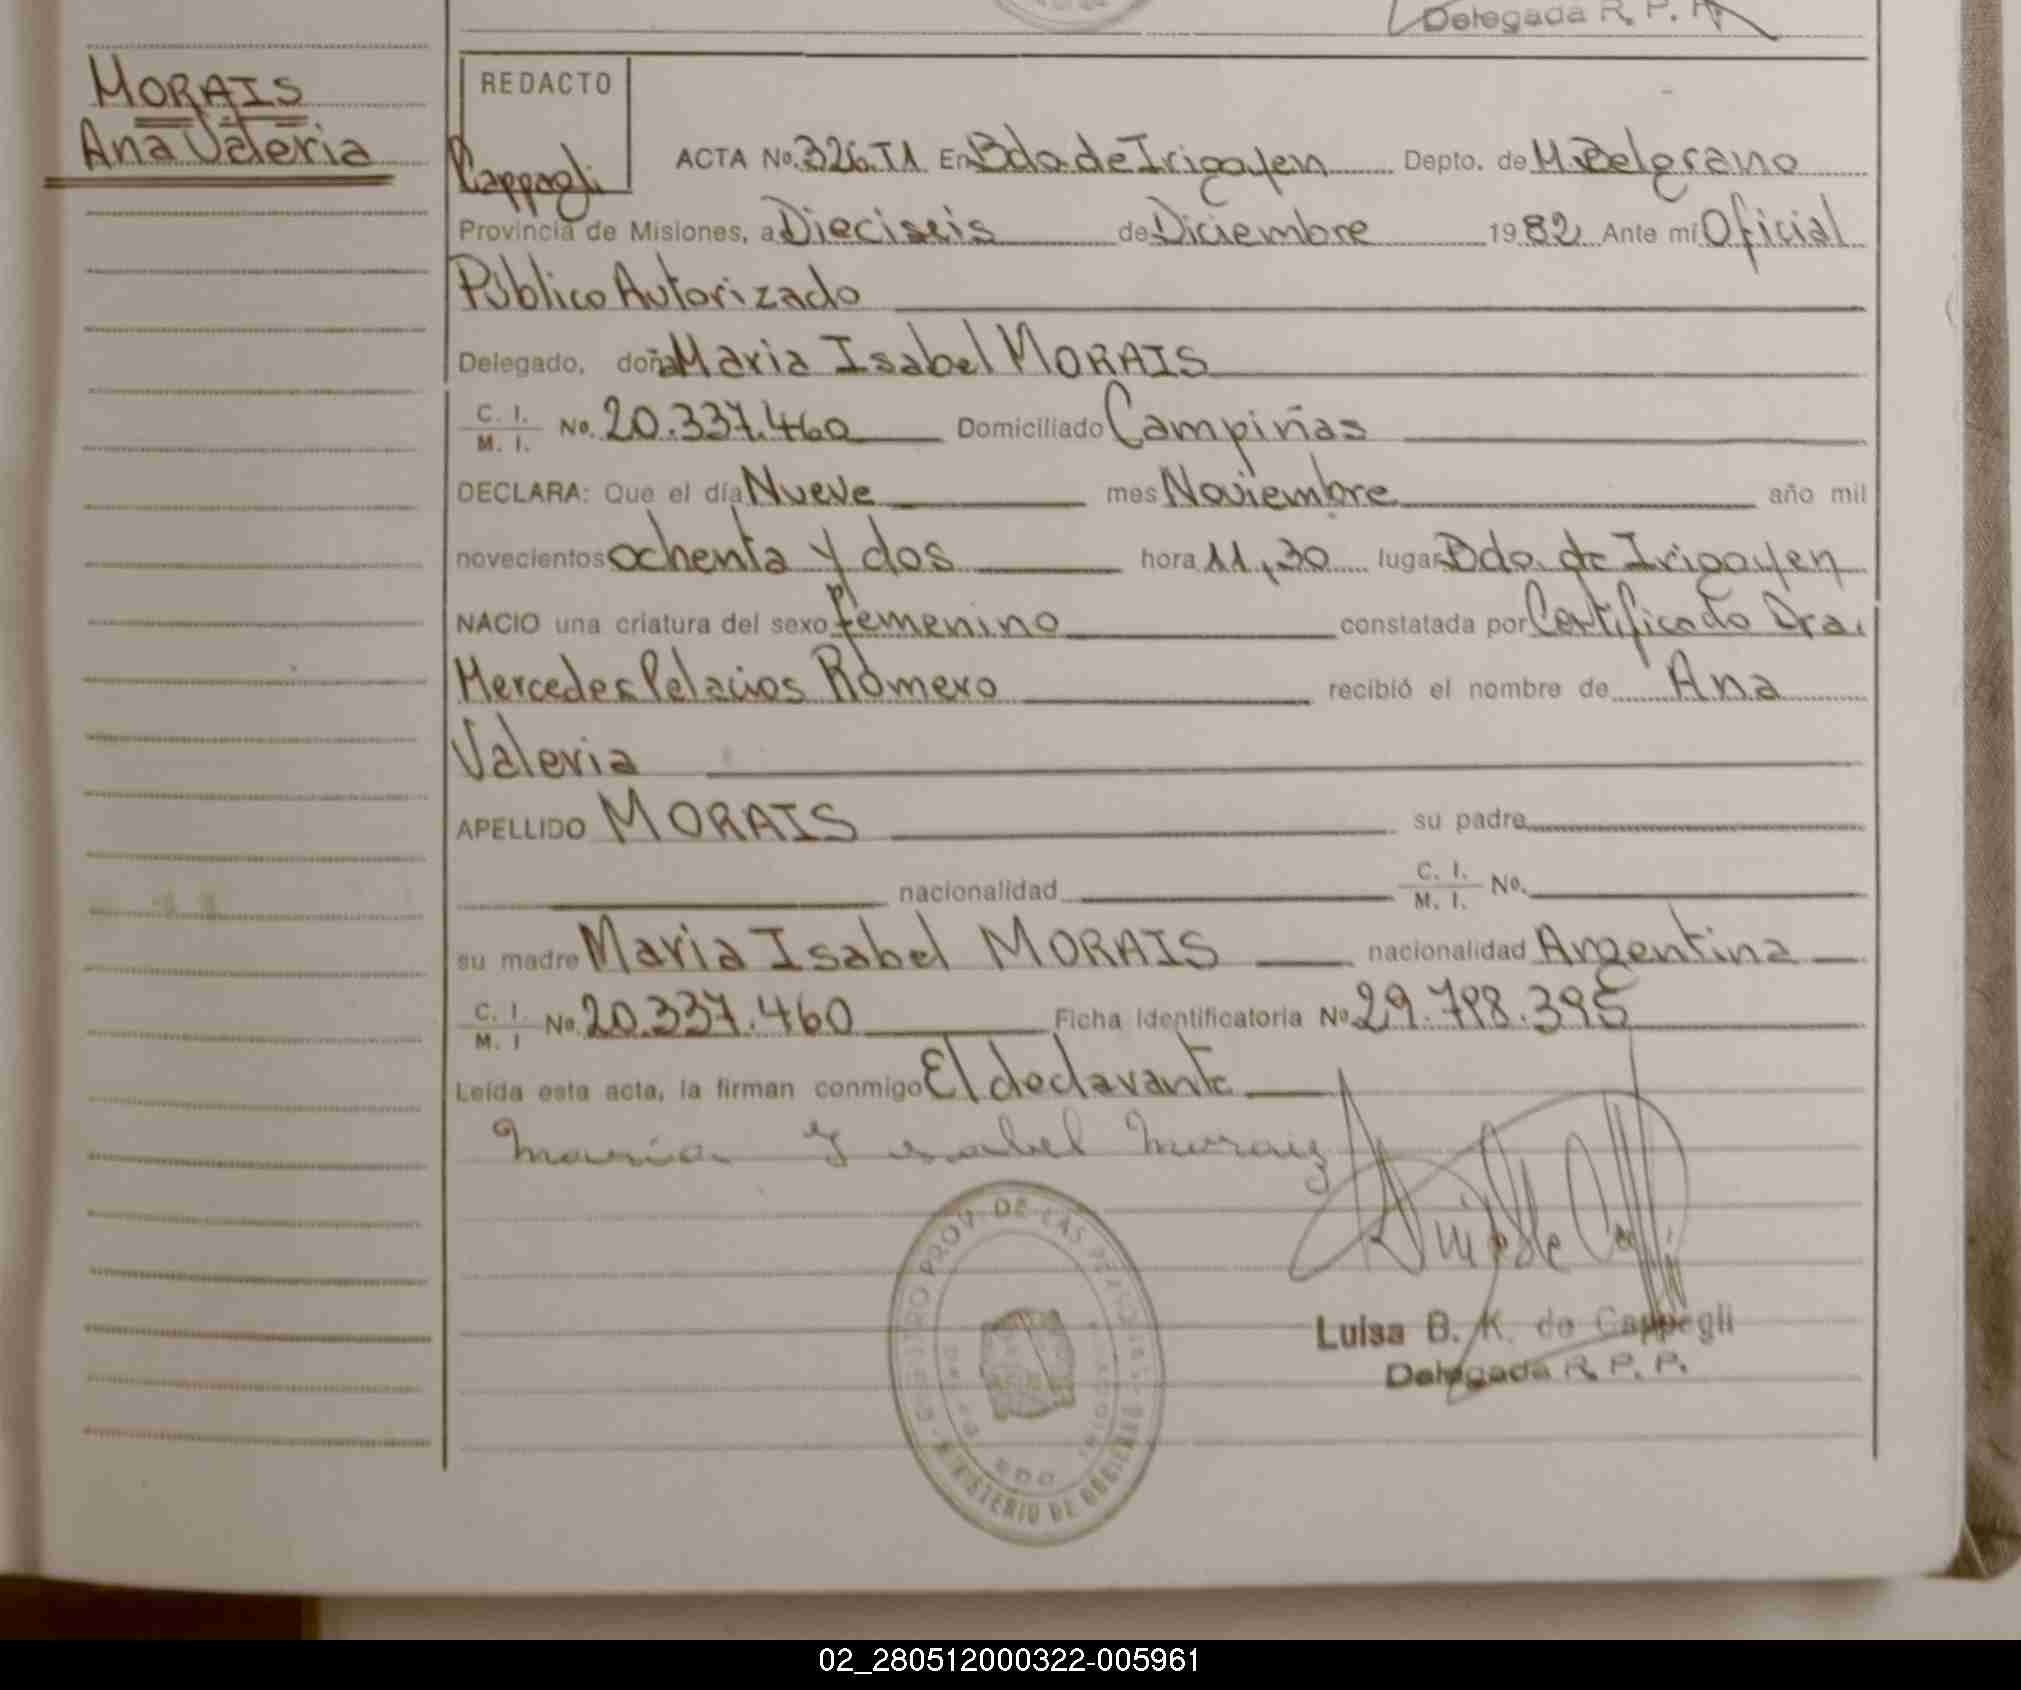 Delegada R. P. P.
MORAIS
Ana Valeria
REDACTO
Cappagli
ACTA No. 326.T1 En Bdo. de Irigoyen Depto. de M. Belgrano
Provincia de Misiones, a Dieciseis de Diciembre 1982 Ante mí Oficial
Público Autorizado
Delegado, doña Maria Isabel MORAIS
C. I. / M. I. No. 20.337.460 Domiciliado Campiñas
DECLARA: Que el día Nueve mes Noviembre año mil
novecientos ochenta y dos hora 11,30 lugar Bdo. de Irigoyen
NACIO una criatura del sexo femenino constatada por Certificado Dra.
Mercedes Pelacios Romero recibió el nombre de Ana
Valeria
APELLIDO MORAIS su padre
nacionalidad C. I. / M. I. No.
su madre Maria Isabel MORAIS nacionalidad Argentina
C. I. / M. I No. 20.337.460 Ficha Identificatoria No. 29.798.395
Leída esta acta, la firman conmigo El declarante
maria Isabel Morais
PROV. DE LAS PERSONAS
MINISTERIO DE GOBIERNO
BDO. IRIGOYEN
Luisa B. K. de Cappagli
Delegada R. P. P.
02_280512000322-005961